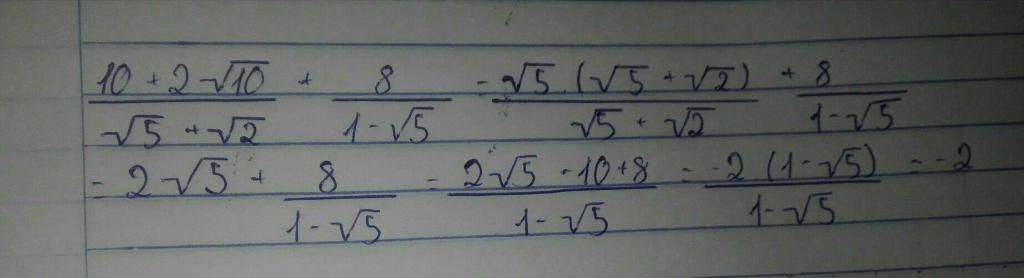 (10 + 2√10)/(√5 + √2) + 8/(1-√5) = √5.(√5 + √2)/(√5 + √2) + 8/(1-√5)
= 2√5 + 8/(1-√5) = (2√5 - 10+8)/(1-√5) = -2(1-√5)/(1-√5) = -2